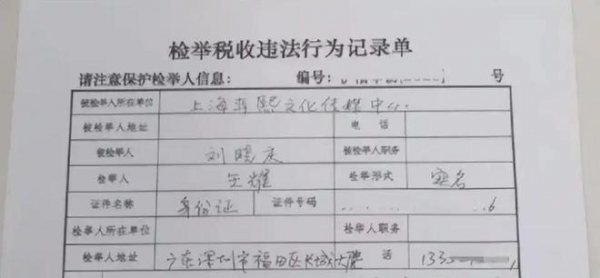 检举税收违法行为记录单
请注意保护检举人信息： 编号： 号
被检举人所在单位 上海 熙文化传媒中心.
被检举人地址 电 话
被检举人 刘晓庆 被检举人职务
检举人 王耀 检举形式 实名
证件名称 身份证 证件号码 6
检举人所在单位 检举人职务
检举人地址 广东深圳市福田区长城大厦 电 话 133